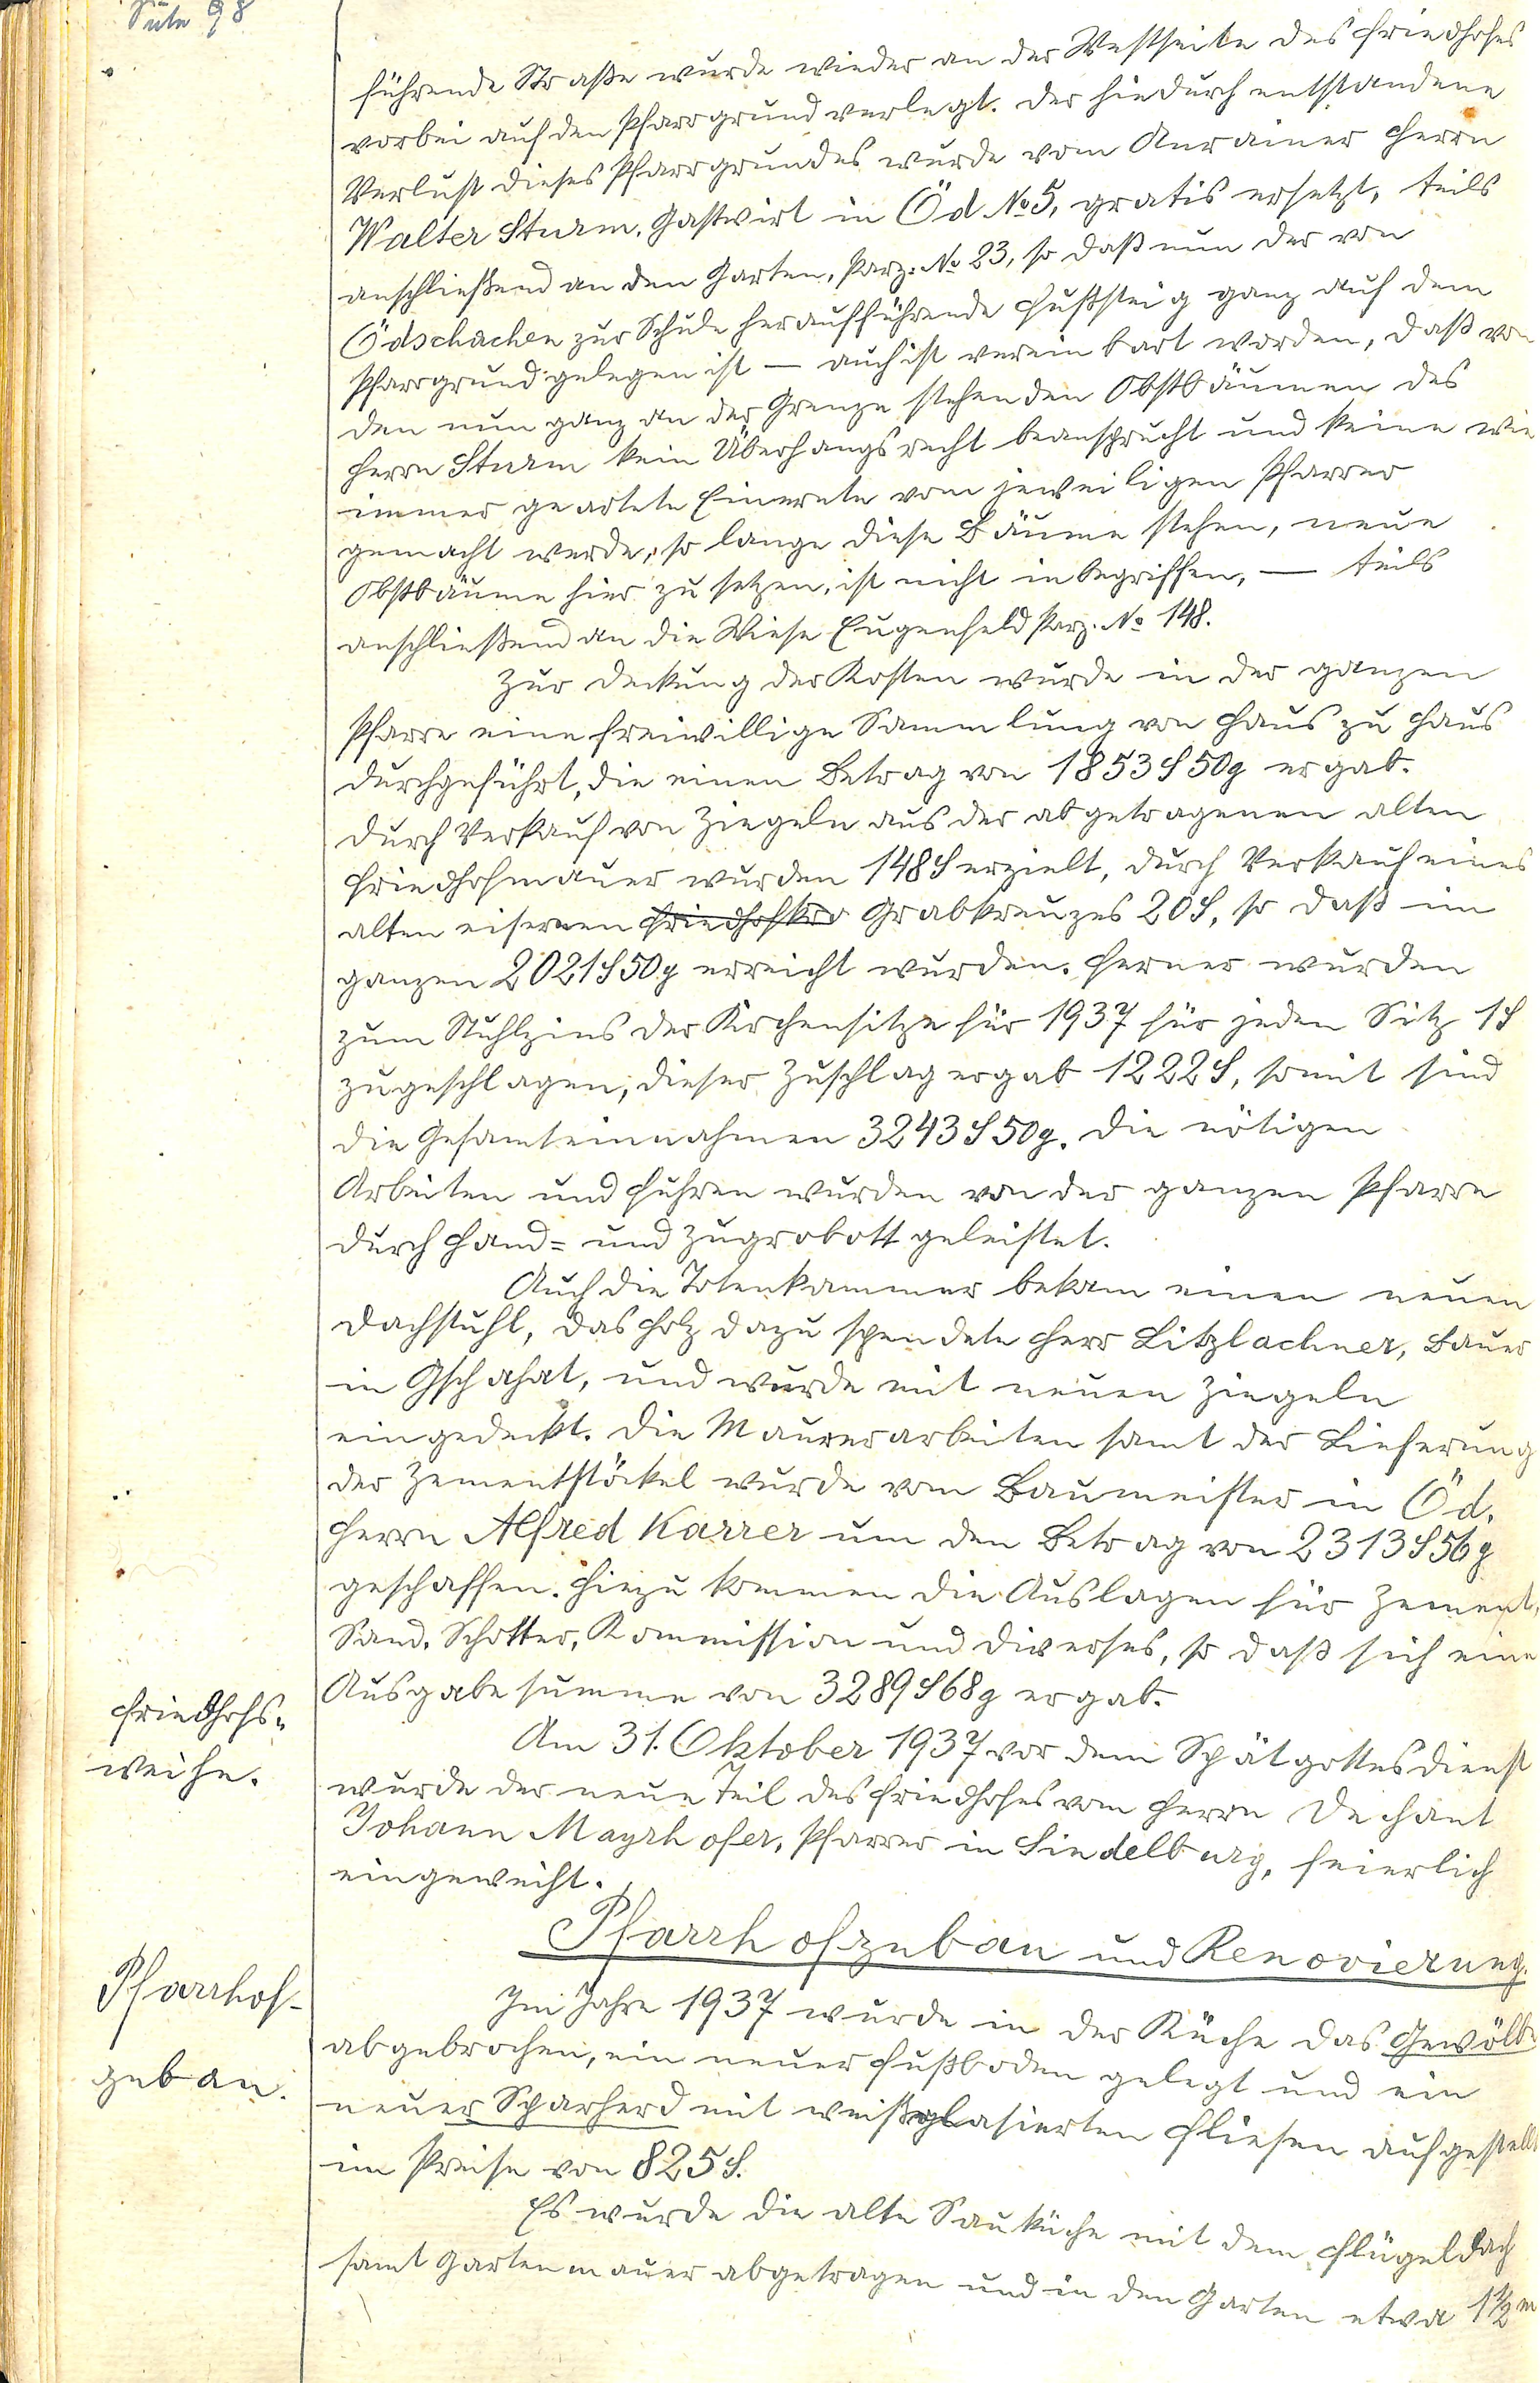 Seite 98
führende Straße wurde wieder an der Westseite des Friedhofes
vorbei auf den Pfarrgrund verlegt. Der hiedurch entstandene
Verlust dieses Pfarrgrundes wurde vom Anrainer Herrn
Walter Sturm, Gastwirt in Öd No 5, gratis ersetzt, teils
anschließend an den Garten, Parz. No 23, so daß nun der von
Ödschachen zur Schule heraufführende Fußsteig ganz auf dem
Pfarrgrund gelegen ist — auch ist vereinbart worden, daß von
den nun ganz an der Grenze stehenden Obstbäumen des
Herrn Sturm kein Überhangsrecht beansprucht und keine wie
immer geartete Einrede vom jeweiligen Pfarrer
gemacht werde, so lange diese Bäume stehen, neue
Obstbäume hier zu setzen, ist nicht inbegriffen, — teils
anschließend an die Wiese Eugenfeld Parz. No 148.
Zur Deckung der Kosten wurde in der ganzen
Pfarre eine freiwillige Sammlung von Haus zu Haus
durchgeführt, die einen Betrag von 1853 S 50 g ergab.
Durch Verkauf von Ziegeln aus der abgetragenen alten
Friedhofmauer wurden 148 S erzielt, durch Verkauf eines
alten eisernen Friedhofkr Grabkreuzes 20 S, so daß im
ganzen 2021 S 50 g erreicht wurden. Ferner wurden
zum Stuhlzins der Kirchensitze für 1937 für jeden Sitz 1 S
zugeschlagen; dieser Zuschlag ergab 1222 S, somit sind
die Gesamteinnahmen 3243 S 50 g. Die nötigen
Arbeiten und Fuhren wurden von der ganzen Pfarre
durch Hand= und Zugrobott geleistet.
Auch die Totenkammer bekam einen neuen
Dachstuhl, das Holz dazu spendete Herr Litzlachner, Bauer
in Gschahat, und wurde mit neuen Ziegeln
eingedeckt. Die Maurerarbeiten samt der Lieferung
der Zementstöckel wurde vom Baumeister in Öd,
Herrn Alfred Karrer um den Betrag von 2313 S 56 g
geschaffen. Hiezu kommen die Auslagen für Zement,
Sand, Schotter, Kommission und Diverses, so daß sich eine
Ausgabesumme von 3289 S 68 g ergab.
Friedhofs=
weihe.
Am 31. Oktober 1937 vor dem Spätgottesdienst
wurde der neue Teil des Friedhofes vom Herrn Dechant
Johann Mayrhofer, Pfarrer in Sindelburg, feierlich
eingeweiht.
Pfarrhofzubau und Renovierung.
Pfarrhof-
zubau.
Im Jahre 1937 wurde in der Küche das Gewölbe
abgebrochen, ein neuer Fußboden gelegt und ein
neuer Sparherd mit weißglasierten Fliesen aufgestellt
im Preise von 825 S.
Es wurde die alte Sauküche mit dem Flügeldach
samt Gartenmauer abgetragen und in den Garten etwa 1½ m